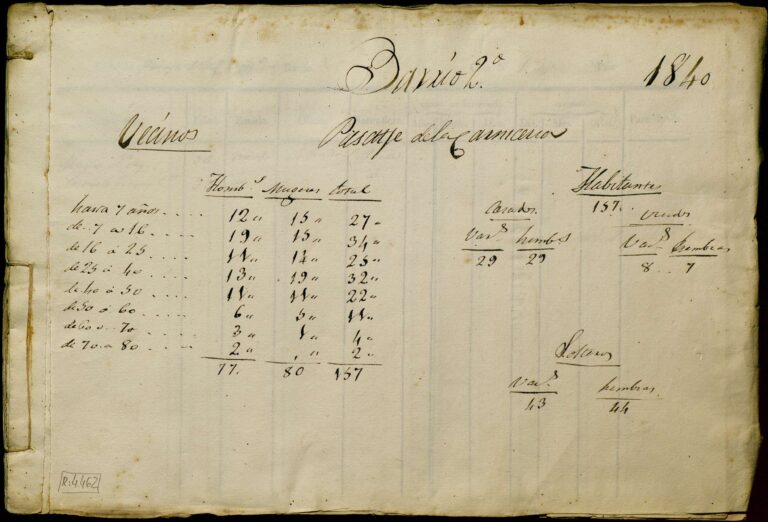 Barrio 2.º 1840
Vecinos Pasaje de la Carniceria
Homb.s Mugeres total
hasta 7 años .... 12 " 15 " 27 "
de 7 a 16 .... 19 " 15 " 34 "
de 16 a 25 .... 11 " 14 " 25 "
de 25 a 40 .... 13 " 19 " 32 "
de 40 a 50 .... 11 " 11 " 22 "
de 50 a 60 .... 6 " 5 " 11 "
de 60 a 70 .... 3 " 1 " 4 "
de 70 a 80 .... 2 " " 2 "
77. 80 157
Habitantes
157.
Casados
Var.s hembr.s
29 29
viudos
Var.s hembras
8 .. 7
Solteros
Var.s hembras
43 44
R:4462